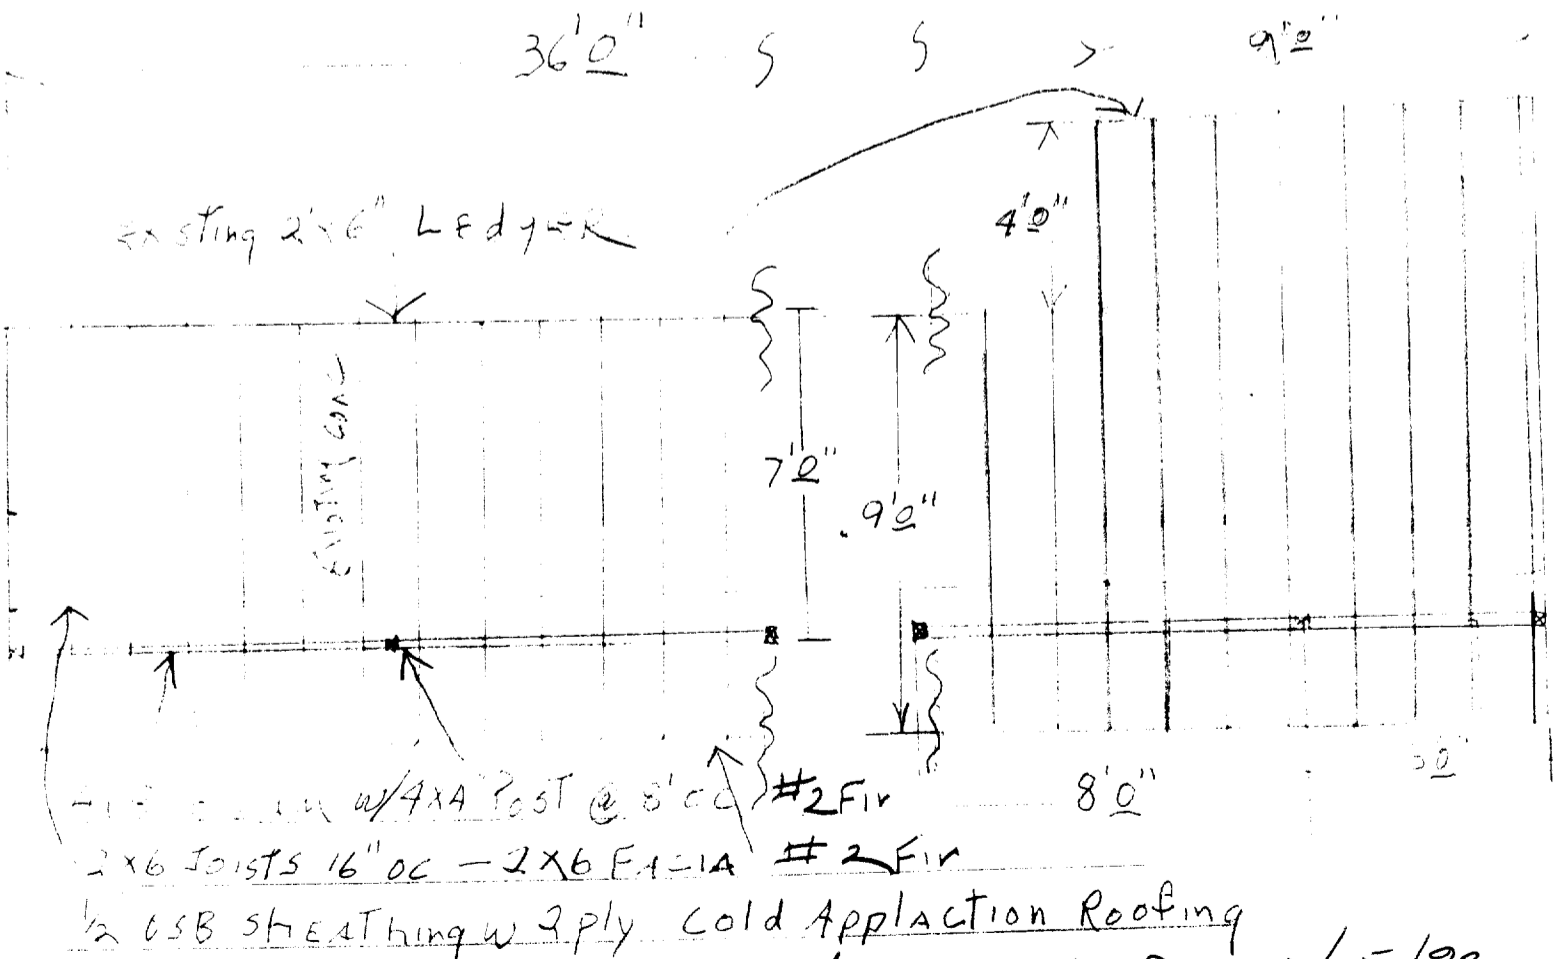 36'0"
9'0"
4'0"
Existing 2"x6" LEdgER
Existing CONC
7'0"
9'0"
8'0"
w/4x4 Post @ 8' oc #2 Fir
2x6 Joists 16" oc - 2x6 #2 Fir
1/2 OSB SHEAThing w 2 ply Cold ApplAction Roofing